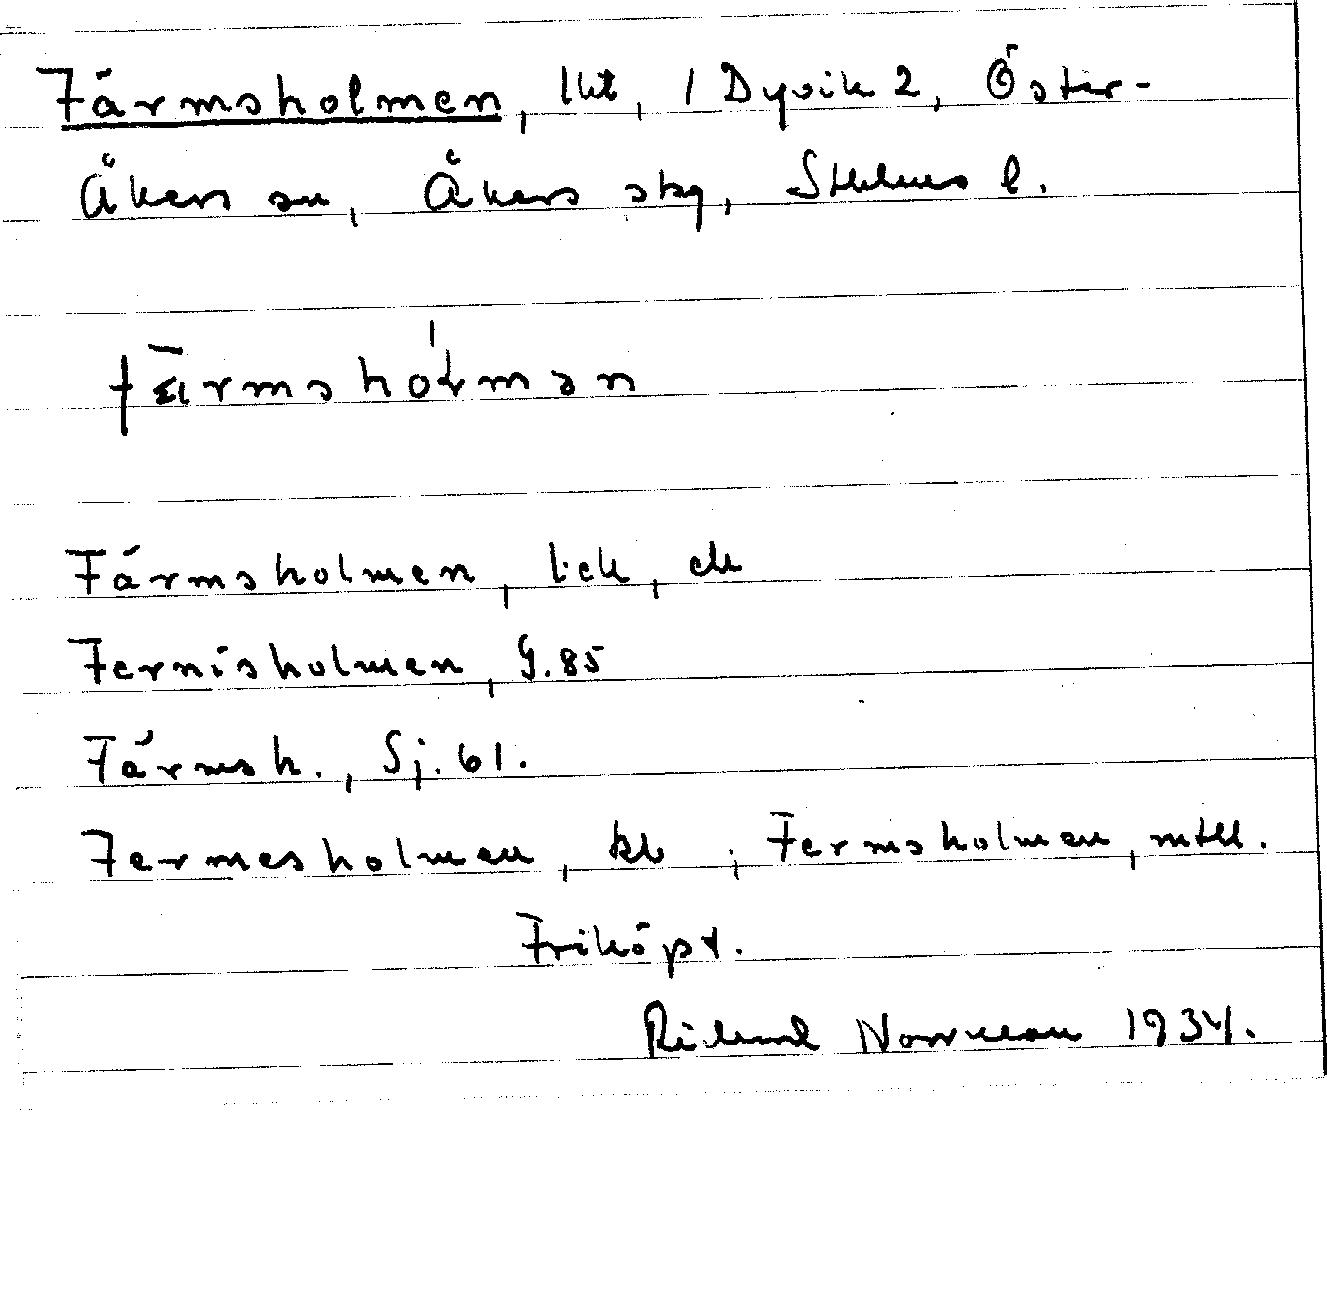 Färmsholmen, lht, / Dyvik 2, Öster-
Åkers sn, Åkers skg, Sthlms l.
fǟrmshólmən
Färmsholmen, bick, ck
Fernisholmen, G. 85
Färmsh., Sj. 61.
Fermesholmen, kb ; Fermsholmen, mtll.
Friköpt.
Rickard Norrman 1934.